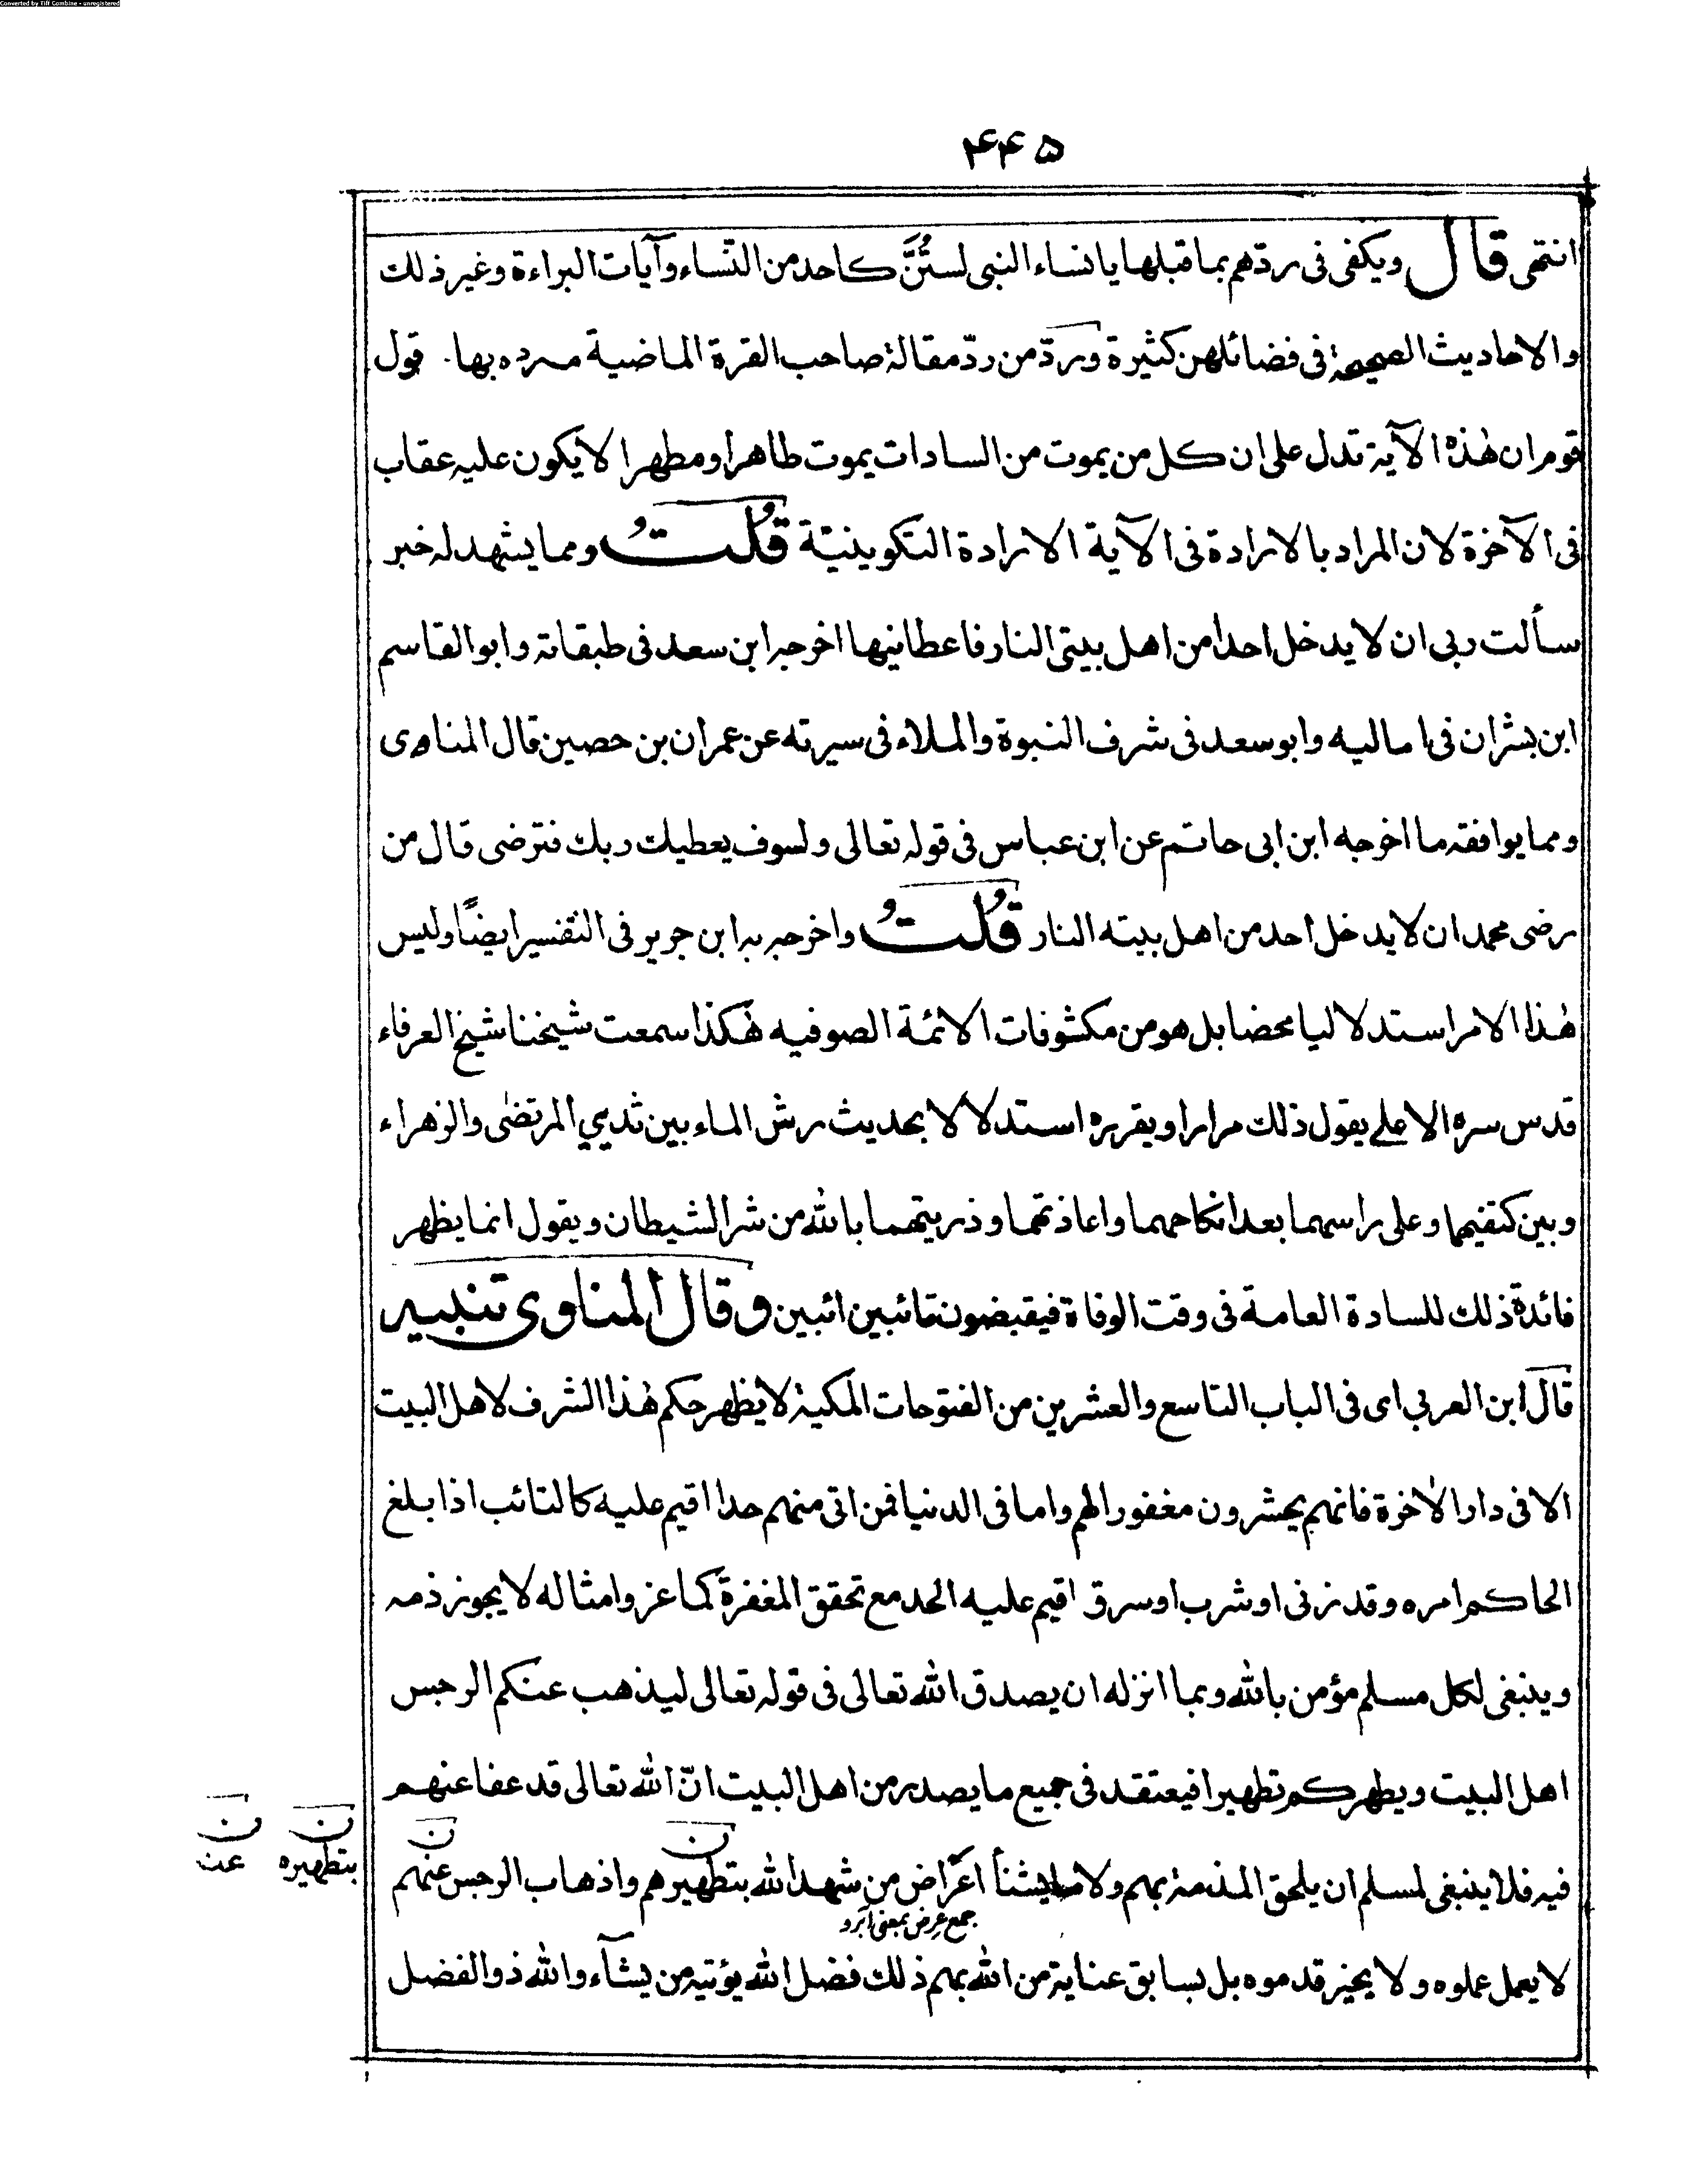 Converted by Tiff Combine - unregistered
۴۴۵
انتهى قال ويكفى فى ردّهم بما قبلها يا نساء النبى لستُنَّ كاحد من النّساء وآيات البراءة وغير ذلك
والاحاديث الصحيحة فى فضائلهن كثيرة وردّ من ردّ مقالة صاحب القرة الماضية مرده بها. قول
قوم ان هٰذه الآية تدل على ان كل من يموت من السادات يموت طاهرا ومطهرا لا يكون عليه عقاب
فى الآخرة لان المراد بالارادة فى الآية الارادة التكوينيّة قُلتُ ومما يشهد له خبر
سألت ربى ان لا يدخل احدا من اهل بيتى النار فاعطانيها اخرجه ابن سعد فى طبقاته وابو القاسم
ابن بشران فى اماليه وابو سعد فى شرف النبوة والملاء فى سيرته عن عمران بن حصين قال المناوى
ومما يوافقه ما اخرجه ابن ابى حاتم عن ابن عباس فى قوله تعالى ولسوف يعطيك ربك فترضى قال من
رضى محمد ان لا يدخل احد من اهل بيته النار قُلتُ واخرجه به ابن جرير فى التفسير ايضًا وليس
هٰذا الامر استدلاليا محضا بل هو من مكشوفات الائمة الصوفيه هٰكذا سمعت شيخنا شيخ العرفاء
قدس سره الاعلے يقول ذلك مرارا ويقرره استدلالا بحديث رش الماء بين ثديي المرتضٰى والزهراء
وبين كتفيهما وعلى راسهما بعد انكاحهما واعاذتهما وذريتهما بالله من شر الشيطان ويقول انما يظهر
فائدة ذلك للسادة العامة فى وقت الوفاة فيقبضون تائبين ائبين وقال المناوى تنبيه
قال ابن العربي اى فى الباب التاسع والعشرين من الفتوحات المكية لا يظهر حكم هٰذا الشرف لاهل البيت
الا فى دار الاٰخرة فانهم يحشرون مغفورا لهم واما فى الدنيا فمن اتى منهم حدا اقيم عليه كالتائب اذا بلغ
الحاكم امره وقد زنى او شرب او سرق اقيم عليه الحد مع تحقق المغفرة كماعز وامثاله لا يجوز ذمه
وينبغى لكل مسلم مؤمن بالله وبما انزله ان يصدق الله تعالى فى قوله تعالى ليذهب عنكم الرجس
اهل البيت ويطهركم تطهيرا فيعتقد فى جميع ما يصدر من اهل البيت انّ الله تعالى قد عفا عنهم
فيه فلا ينبغى لمسلم ان يلحق المذمة بهم ولا يشنأ اعراض من شهد الله بتطهيرهم واذهاب الرجس عنهم
ن ن
بتطهيره عنه
جمع عرض بمعنى ابرو
لا يعمل عملوه ولا بخير قدموه بل بسابق عناية من الله بهم ذلك فضل الله يؤتيه من يشآء والله ذو الفضل